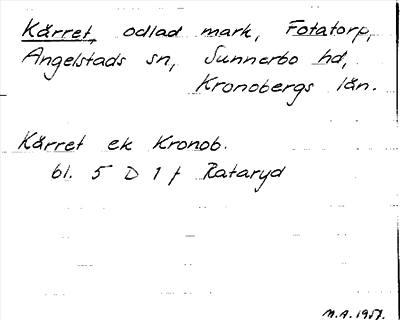 Kärret, odlad mark, Fotatorp,
Angelstads sn, Sunnerbo hd,
Kronobergs län.
Kärret ek Kronob.
bl. 5 D 1 f Rataryd
M.A. 1957.